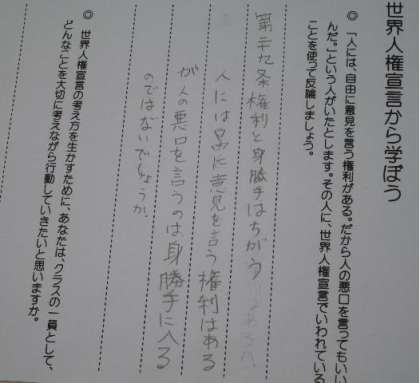 世界人権宣言から学ぼう
◎「人は、自由に意見を言う権利がある。だから人の悪口を言ってもいい
んだ。」という人がいたとします。その人に、世界人権宣言でいわれている
ことを使って反論しましょう。
第二十九条権利と身勝手はちがう
人には自由に意見を言う権利はある
が人の悪口を言うのは身勝手に入る
のではないでしょうか。
◎ 世界人権宣言の考え方を生かすために、あなたは、クラスの一員として、
どんなことを大切に考えながら行動していきたいと思いますか。